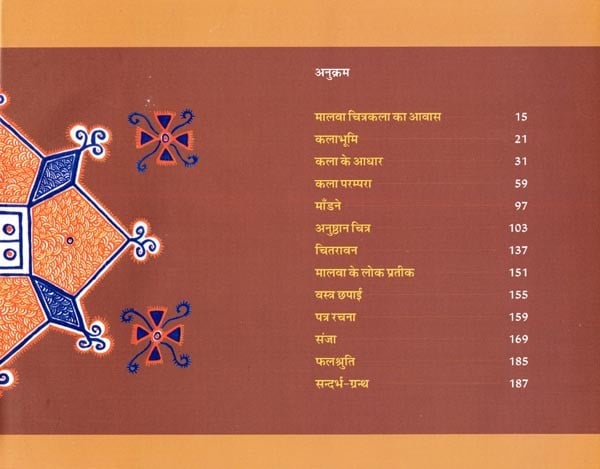 अनुक्रम
मालवा चित्रकला का आवास 15
कलाभूमि 21
कला के आधार 31
कला परम्परा 59
माँडने 97
अनुष्ठान चित्र 103
चितरावन 137
मालवा के लोक प्रतीक 151
वस्त्र छपाई 155
पत्र रचना 159
संजा 169
फलश्रुति 185
सन्दर्भ-ग्रन्थ 187